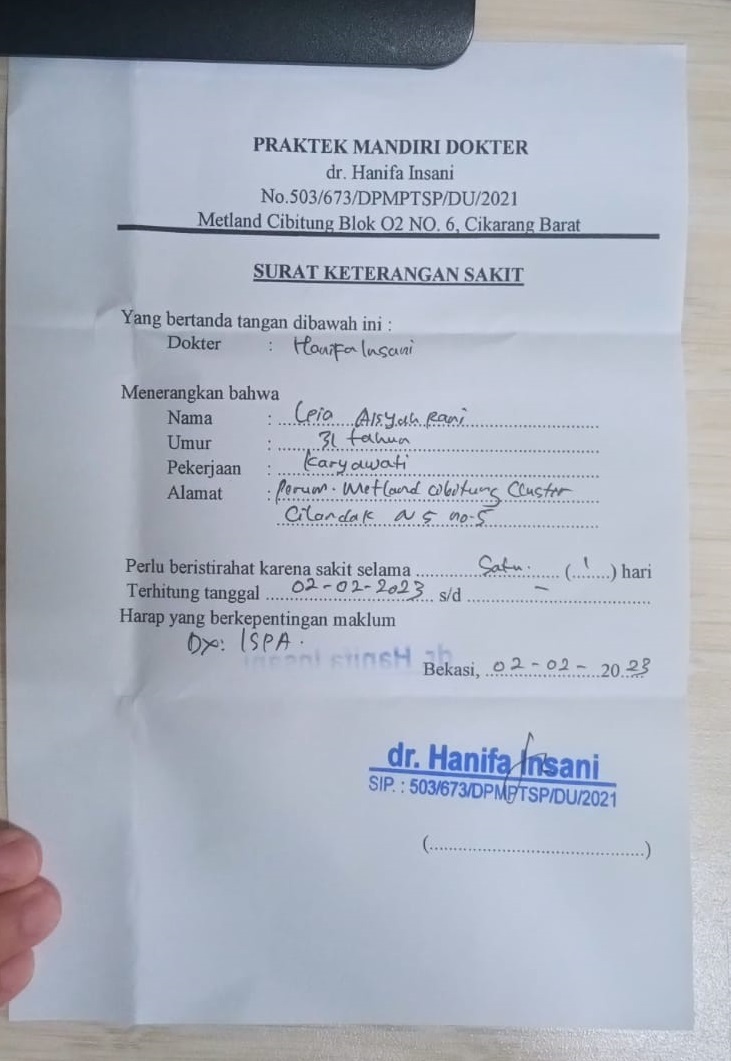 PRAKTEK MANDIRI DOKTER
dr. Hanifa Insani
No.503/673/DPMPTSP/DU/2021
Metland Cibitung Blok O2 NO. 6, Cikarang Barat
SURAT KETERANGAN SAKIT
Yang bertanda tangan dibawah ini :
Dokter : Hanifa Insani
Menerangkan bahwa
Nama : Leia Aisyah Rani
Umur : 31 tahun
Pekerjaan : Karyawati
Alamat : Perum. Metland Cibitung Cluster
Cilandak N5 no-5
Perlu beristirahat karena sakit selama Satu (1) hari
Terhitung tanggal 02-02-2023 s/d -
Harap yang berkepentingan maklum
Dx: ISPA.
Bekasi, 02-02-2023
dr. Hanifa Insani
SIP. : 503/673/DPMPTSP/DU/2021
(........................................)